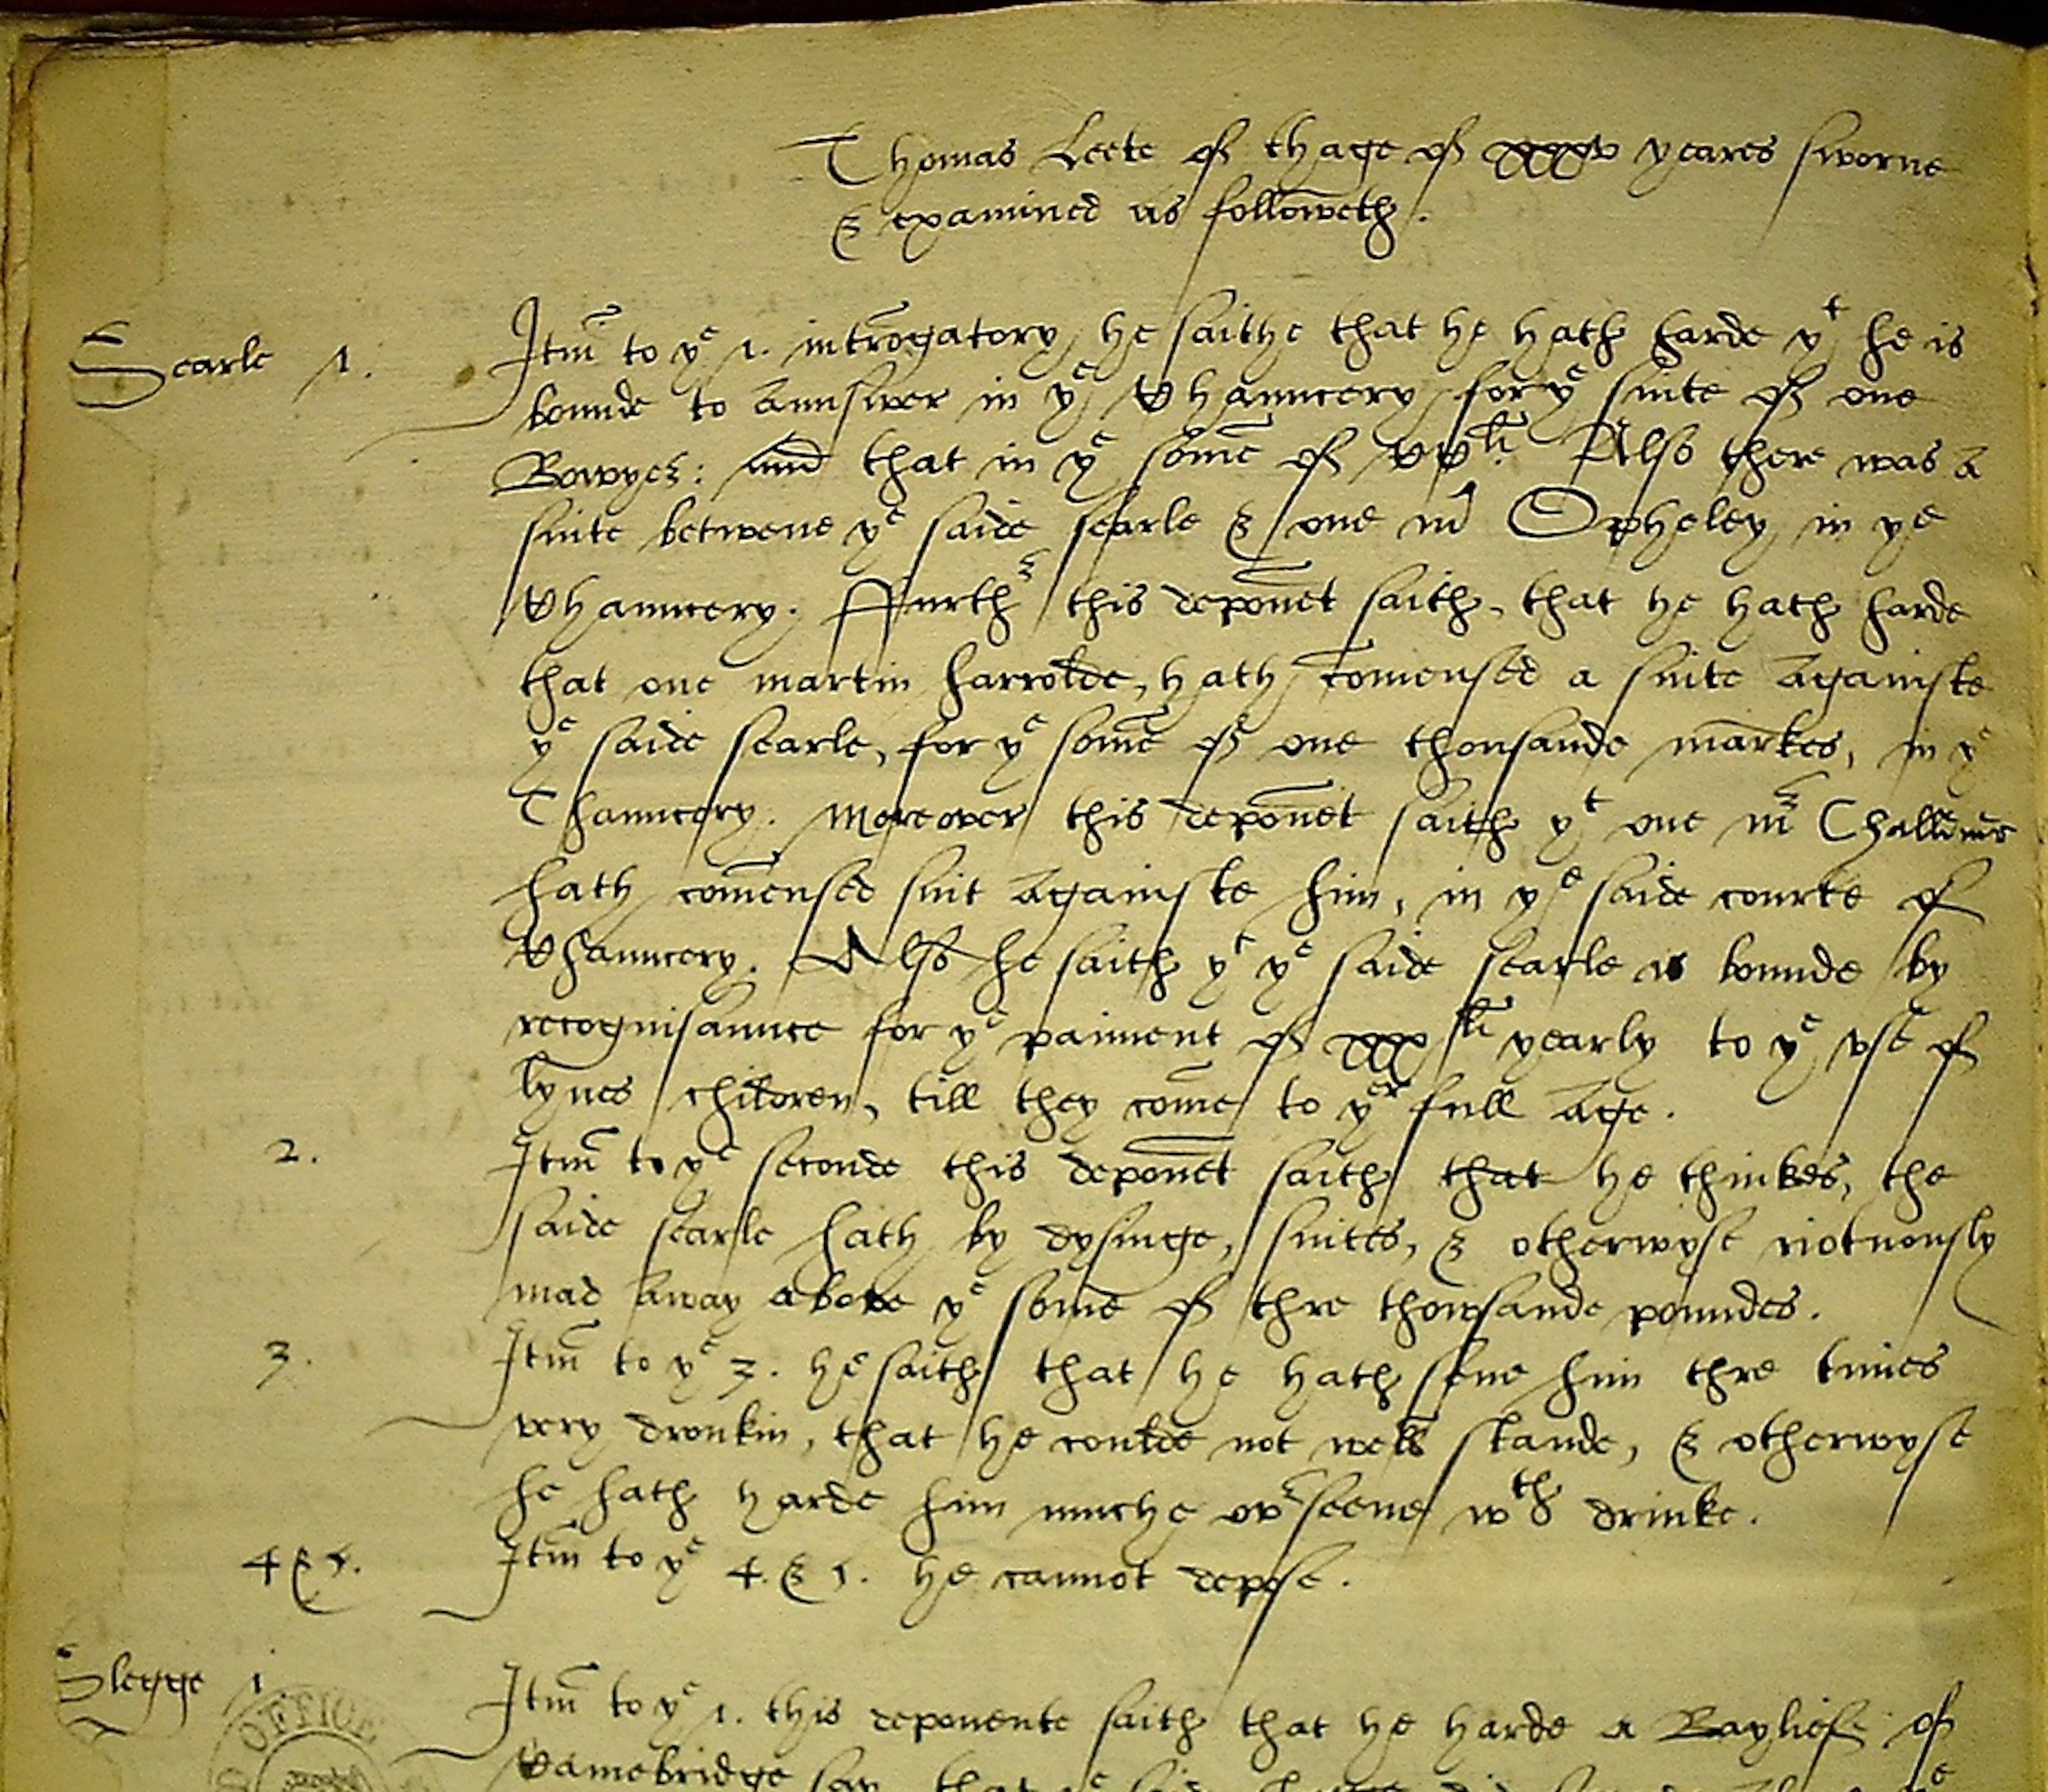 Thomas Leete of thage of xxxv yeares sworne
& examined as followeth.
Searle 1. Itm to ye 1. introgatory he saithe that he hath harde yt he is
bounde to Aunswer in ye Chauncery for ye suite of one
Bowyer: and that in ye some of CCli. Also there was A
suite betwene ye saide searle & one mr Opheley in ye
Chauncery. Further this deponet saith, that he hath harde
that one martin harrolde, hath comensed a suite Againste
ye saide searle, for ye some of one thousande markes, in ye
Chauncery. Moreover this deponet saith yt one mr
hath comensed suit Againste him, in ye saide courte of
Chauncery. Also he saith yt ye saide searle is bounde by
recognisaunce for ye paiment of xxxli yearly to ye use of
lynes children, till they come to yer full Age.
2. Itm to ye seconde this deponet saith that he thinkes, the
saide searle hath by dysinge, suites, & otherwyse riotuously
mad Away above ye some of thre thowsande poundes.
3. Itm to ye 3. he saith that he hath sene him thre times
very dronkin, that he coulde not well stande, & otherwyse
he hath harde him muche overseene wth drinke.
4 & 5. Itm to ye 4. & 5. he cannot depose.
Slegge 1 Itm to ye 1. this deponente saith that he harde a Baylief of
Camebridge say that ye
OFFICE